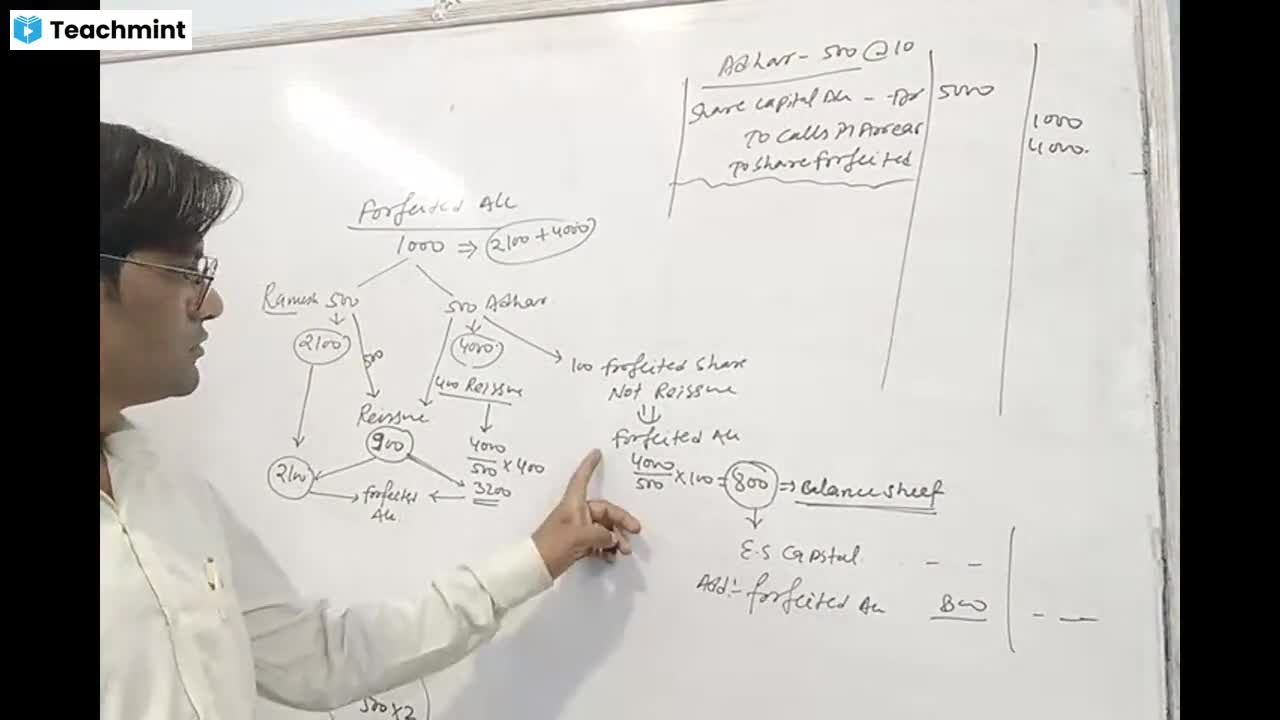 Teachmint
Adhar - 500 @ 10
Share Capital A/c - - Dr 5000
To Calls in Arrear 1000
To Share forfeited 4000.
Forfeited A/c
1000 ⇒ 2100 + 4000
Ramesh 500
500 Adhar
2100
4000.
500
100 forfeited Share
Not Reissue
400 Reissue
Reissue
900
4000
500 × 400
3200
2100
forfeited
A/c
forfeited A/c
4000
500 × 100 = 800 ⇒ Balance sheet
E.S Capital - -
Add:- forfeited A/c 800 - -
500 × 2